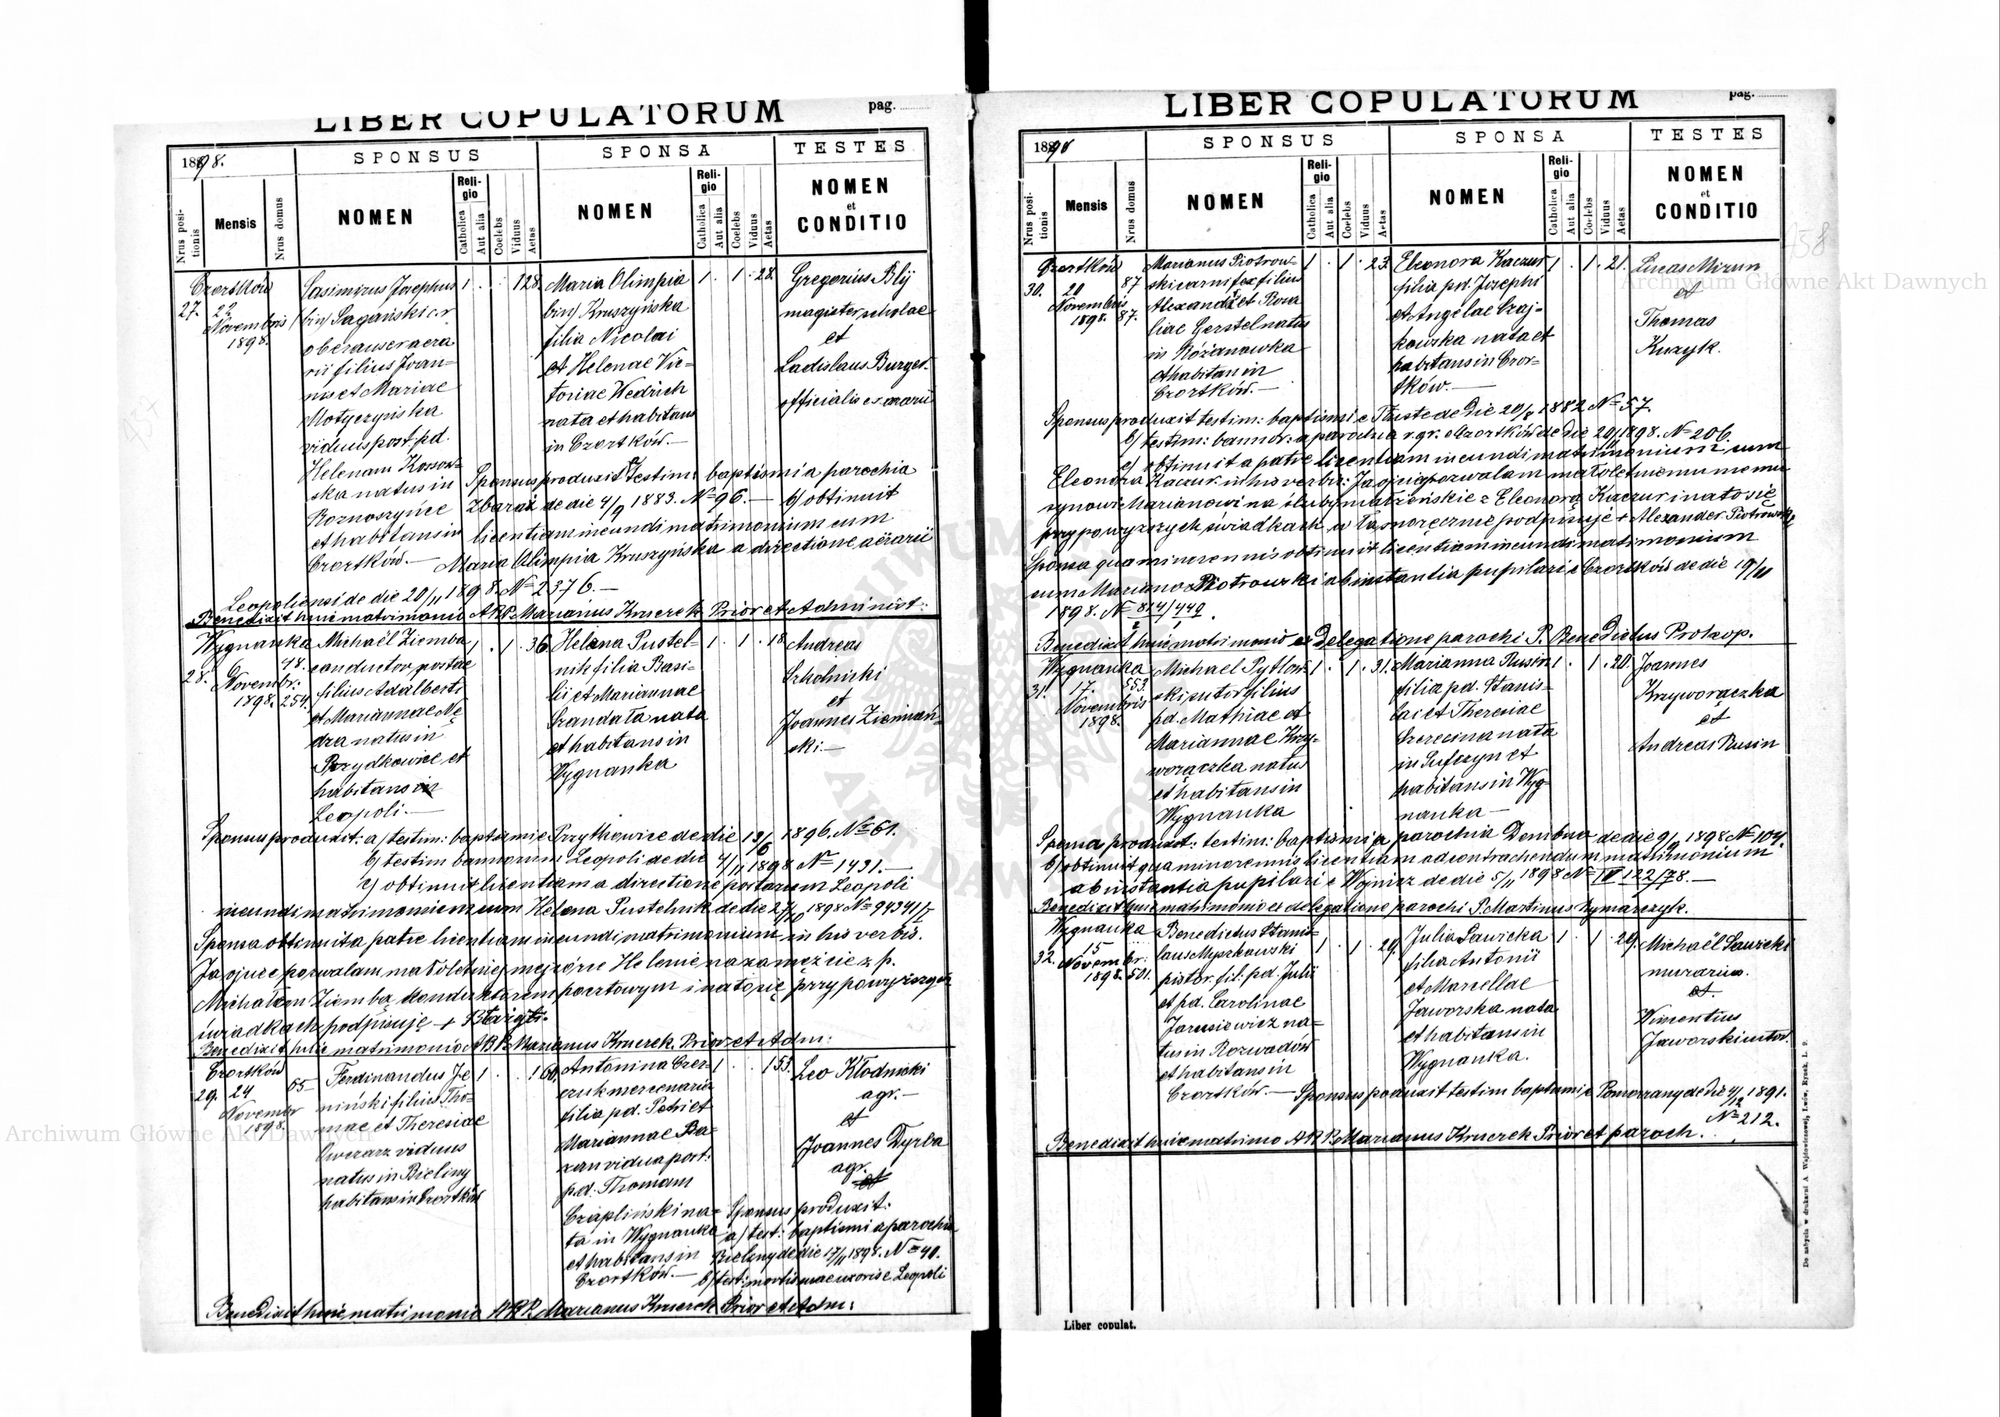 LIBER COPULATORUM
pag.
1898.
SPONSUS
SPONSA
TESTES
Nrus positionis
Mensis
Nrus domus
NOMEN
Religio
Catholica
Aut alia
Coelebs
Viduus
Aetas
NOMEN
Religio
Catholica
Aut alia
Coelebs
Viduus
Aetas
NOMEN
et
CONDITIO
Czortków
27. 22
Novembris
1898.
Casimirus Josephus
bin Sagański c.r.
filius Joan-
nis et Mariae
Motyczyńska
viduus post pd.
Helenam Kossow-
ska natus in
Roznoszyńce
et habitans in
Czortków.—
1 . . 1 28.
Maria Olimpia
bin Kruszyńska
filia Nicolai
et Helenae Vic-
toriae Wedrich
nata et habitans
in Czortków.—
1 . 1 . 28.
Gregorius Blÿ
magister scholae
et
Ladislaus Burger
officialis
Sponsus produxit testim: baptismi a parochia
Zbaraż de die 4/9 1883. No 96.— b/ obtinuit
licentiam incundi matrimonium cum
Maria Olimpia Kruszyńska a directione aërarii
Leopoliensi de die 20/11 1898. No 2376.—
Benedixit huic matrimonio A.R.P. Marianus Kruczek Prior et Administ:
Wygnanka
28. 48.
Novembr.
1898. 254.
Michaël Ziemba
conductor postae
filius Adalberti
et Mariannae Nę-
dza natus in
Przydkowice et
habitans in
Leopoli.—
1 . 1 . 36
Helena Pustel-
nik filia Basi-
lii et Mariannae
Szandała nata
et habitans in
Wygnanka
1 . 1 . 18
Andreas
Szkolnicki
et
Joannes Ziemiań-
ski.—
Sponsus produxit: a/ testim: baptismi e Przytkowice de die 13/6 1896. No 61.
b/ testim bannorum Leopoli de die 4/11 1898 No 1431.—
c/ obtinuit licentiam a directione postarum Leopoli
incundi matrimonium cum Helena Pustelnik de die 27/10 1898 No 94341/I
Sponsa obtinuit a patre licentiam incundi matrimonium in his verbis.
Ja ojciec pozwalam małoletniej mej córce Helenie na zamęźcie z p.
Michałem Ziembą konduktorem pocztowym i na to się przy powyższych
świadkach podpisuję +
Benedixit huic matrimonio A.R.P. Marianus Kruczek Prior et Adm:
Czortków
29. 24 65
Novembr
1898.
Ferdinandus Je-
niński filius Tho-
mae et Theresiae
Owczarz viduus
natus in Bieliny
habitans in Czortków
1 . . 1 60.
Antonina Czer-
czuk mercenaria
filia pd. Petri et
Mariannae Ba-
ran vidua post:
pd. Thomam
Czaplińskina-
ta in Wygnanka
et habitans in
Czortków.—
1 . . 1 53.
Leo Kłodnicki
agr.—
et
Joannes Dyrba
agr.
Sponsus produxit:
a/ test: baptismi a parochia
Bieliny de die 17/11 1898. No 40.
b/ test: mortis suae uxoris e Leopoli
Benedixit huic matrimonio A.R.P. Marianus Kruczek Prior et Adm:
LIBER COPULATORUM
pag.
1898
SPONSUS
SPONSA
TESTES
Nrus positionis
Mensis
Nrus domus
NOMEN
Religio
Catholica
Aut alia
Coelebs
Viduus
Aetas
NOMEN
Religio
Catholica
Aut alia
Coelebs
Viduus
Aetas
NOMEN
et
CONDITIO
158
Czortków
30. 20 87
Novembris
1898. 87.
Marianus Piotrow-
ski carnifex filius
Alexandri et Rosa-
liae Gerstel natus
in Różanowka
et habitans in
Czortków.—
1 . 1 . 23.
Eleonora Kaczur
filia pd. Josephi
et Angelae Czaj-
kowska nata et
habitans in Czor-
tków.—
1 . 1 . 21.
Lucas Mizun
et
Thomas
Kuzyk.
Sponsus produxit testim: baptismi e Tłuste de die 20/8 1882 No 57.
b/ testim: bannor: a parochia r.gr. Czortków de die 20/11 1898. No 206.
c/ obtinuit a patre licentiam incundi matrimonium cum
Eleonora Kaczur in his verbis: Ja ojciec pozwalam małoletniemu memu
synowi Marianowi na śluby małżeńskie z Eleonorą Kaczur i na to się
przy powyższych świadkach własnoręcznie podpisuję + Alexander Piotrowski
Sponsa qua minorennis obtinuit licentiam incundi matrimonium
cum Mariano Piotrowski ab instantia pupilari e Czortków de die 19/11
1898. No 814/449.
Benedixit huic matrimonio ex delegatione parochi P. Benedictus Prokop.
Wygnanka
31. 17. 553.
Novembris
1898.
Michael Pytlow-
ski sutor filius
pd. Mathiae et
Mariannae Krzy-
worączka natus
et habitans in
Wygnanka
1 . 1 . 31.
Marianna Rusin
filia pd. Stanis-
lai et Theresiae
nata
in Sufczyn et
habitans in Wyg-
nanka—
1 . 1 . 20.
Joannes
Krzyworączka
et
Andreas Rusin
Sponsa produxit: testim: baptismi a parochia Dembno de die 9/9 1898 No 104.
b/ obtinuit qua minorennis licentiam ad contrachendum matrimonium
ab instantia pupilari e Wojnicz de die 5/11 1898 No IV 122/78.—
Benedixit huic matrimonio ex delegatione parochi P. Martinus Dymarczyk.
Wygnanka
32. 15
Novembr:
1898. 501.
Benedictus Stanis-
laus Myszkowski
pistor fil. pd. Julii
et pd. Carolinae
Jarusiewicz na-
tus in Rozwadów
et habitans in
Czortków.—
1 . 1 . 29.
Julia Sawicka
filia Antonii
et Marcellae
Jaworska nata
et habitans in
Wygnanka.
1 . 1 . 29.
Michaël Sawicki
murarius.
et.
Vincentius
Jaworski sutor.
Sponsus produxit testim baptismi e Pomorzany de die 4/2 1891.
No 212.
Benedixit huic matrimo A.R.P. Marianus Kruczek Prior et paroch.
Liber copulat.
Do nabycia w drukarni A Wajdowiczowej, Lwów, Rynek, L. 9.
Archiwum Główne Akt Dawnych
Archiwum Główne Akt Dawnych